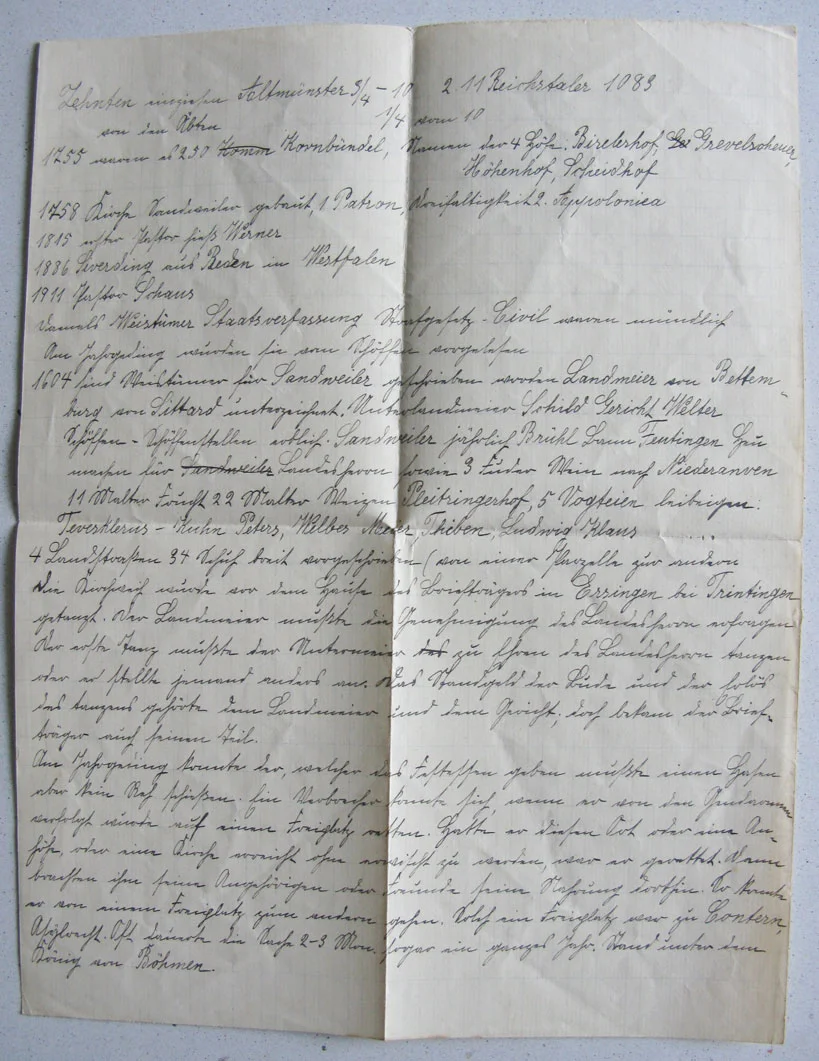 Zehnten einziehen Altmünster 3/4 – 10 2 11 Reichstaler 1083
von den Äbten 1/4 vom 10
1755 waren es 230 Komm Kornbündel, Namen der 4 Höfe: Birelerhof, Ge Grevelscheuer,
Höhenhof, Scheidhof
1758 Kirche Sandweiler gebaut, 1 Patron, Dreifaltigkeit 2. Appolonica
1815 erster Pastor hieß Werner
1886 Severding aus Reden in Westfalen
1911 Pastor Schaus
Damals Weistümer Staatsverfassung Strafgesetz - Civil waren mündlich
Am Jahrgeding wurden sie vom Schöffen vorgelesen
1604 sind Weistümer für Sandweiler geschrieben worden Landmeier von Bettem-
burg von Sittard unterzeichnet. Unterlandmeier Schild Gericht Welter
Schöffen - Schöffenstellen erblich. Sandweiler jährlich Brühl Bann Fentingen Heu
machen für Sandweiler Landesherrn sowie 3 Fuder Wein nach Niederanven
11 Malter Frucht 22 Malter Weizen Pleitringerhof, 5 Vogteien leibeigen:
Teversklerus - Kuhn Peters, Welbes Meier, Thiben, Ludwig Klaus
4 Landstraßen 34 Schuh breit vorgeschrieben (von einer Parzelle zur andern
Die Kirchweih wurde vor dem Hause des Briefträgers in Erzingen bei Trintingen
getanzt. Der Landmeier mußte die Genehmigung des Landesherrn erfragen
Der erste Tanz mußte der Untermeier des zu Ehren des Landesherrn tanzen
oder er stellte jemand anders an. Das Standgeld der Bude und der Erlös
des tanzens gehörte dem Landmeier und dem Gericht; doch bekam der Brief-
träger auch seinen Teil.
Am Jahrgeding konnte der, welcher das Festessen geben mußte einen Hasen
aber kein Reh schießen. Ein Verbrecher konnte sich, wenn er von den Gendarmen
verfolgt wurde auf einen Freiplatz retten. Hatte er diesen Ort oder eine An-
höhe, oder eine Kirche erreicht ohne erwischt zu werden, war er gerettet. Dann
brachten ihm seine Angehörigen oder Freunde seine Nahrung dorthin. So konnte
er von einem Freiplatz zum andern gehen. Solch ein Freiplatz war zu Contern,
Asylrecht. Oft dauerte die Sache 2-3 Mon. sogar ein ganzes Jahr. Stand unter dem
König von Böhmen.